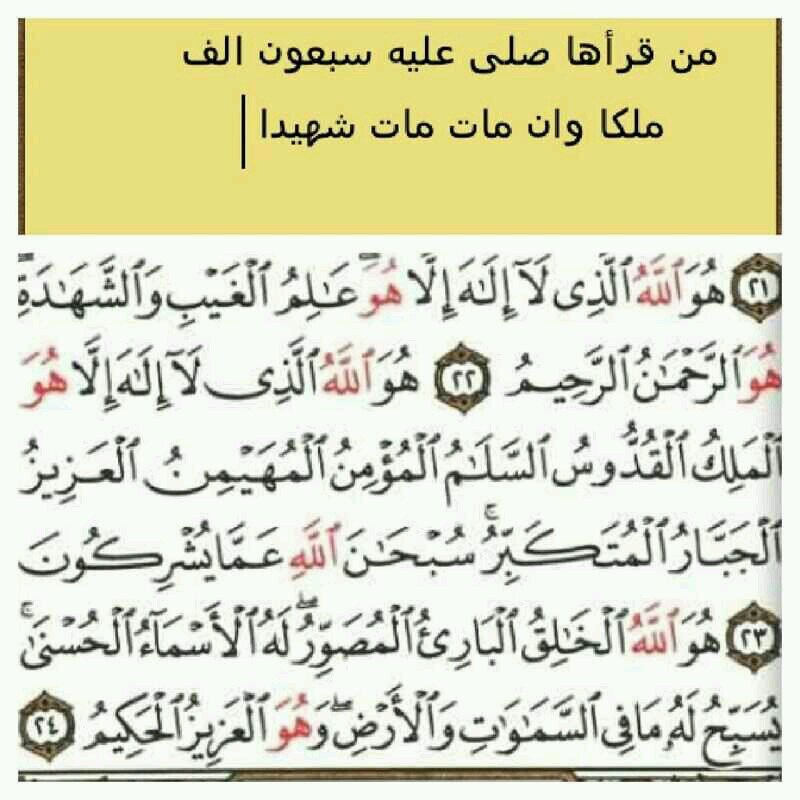 من قرأها صلى عليه سبعون الف
ملكا وان مات مات شهيدا
٢١ هُوَ ٱللَّهُ ٱلَّذِى لَآ إِلَٰهَ إِلَّا هُوَۖ عَٰلِمُ ٱلْغَيْبِ وَٱلشَّهَٰدَةِۖ
هُوَ ٱلرَّحْمَٰنُ ٱلرَّحِيمُ ٢٢ هُوَ ٱللَّهُ ٱلَّذِى لَآ إِلَٰهَ إِلَّا هُوَ
ٱلْمَلِكُ ٱلْقُدُّوسُ ٱلسَّلَٰمُ ٱلْمُؤْمِنُ ٱلْمُهَيْمِنُ ٱلْعَزِيزُ
ٱلْجَبَّارُ ٱلْمُتَكَبِّرُۚ سُبْحَٰنَ ٱللَّهِ عَمَّا يُشْرِكُونَ
٢٣ هُوَ ٱللَّهُ ٱلْخَٰلِقُ ٱلْبَارِئُ ٱلْمُصَوِّرُۖ لَهُ ٱلْأَسْمَآءُ ٱلْحُسْنَىٰۚ
يُسَبِّحُ لَهُۥ مَا فِى ٱلسَّمَٰوَٰتِ وَٱلْأَرْضِۖ وَهُوَ ٱلْعَزِيزُ ٱلْحَكِيمُ ٢٤